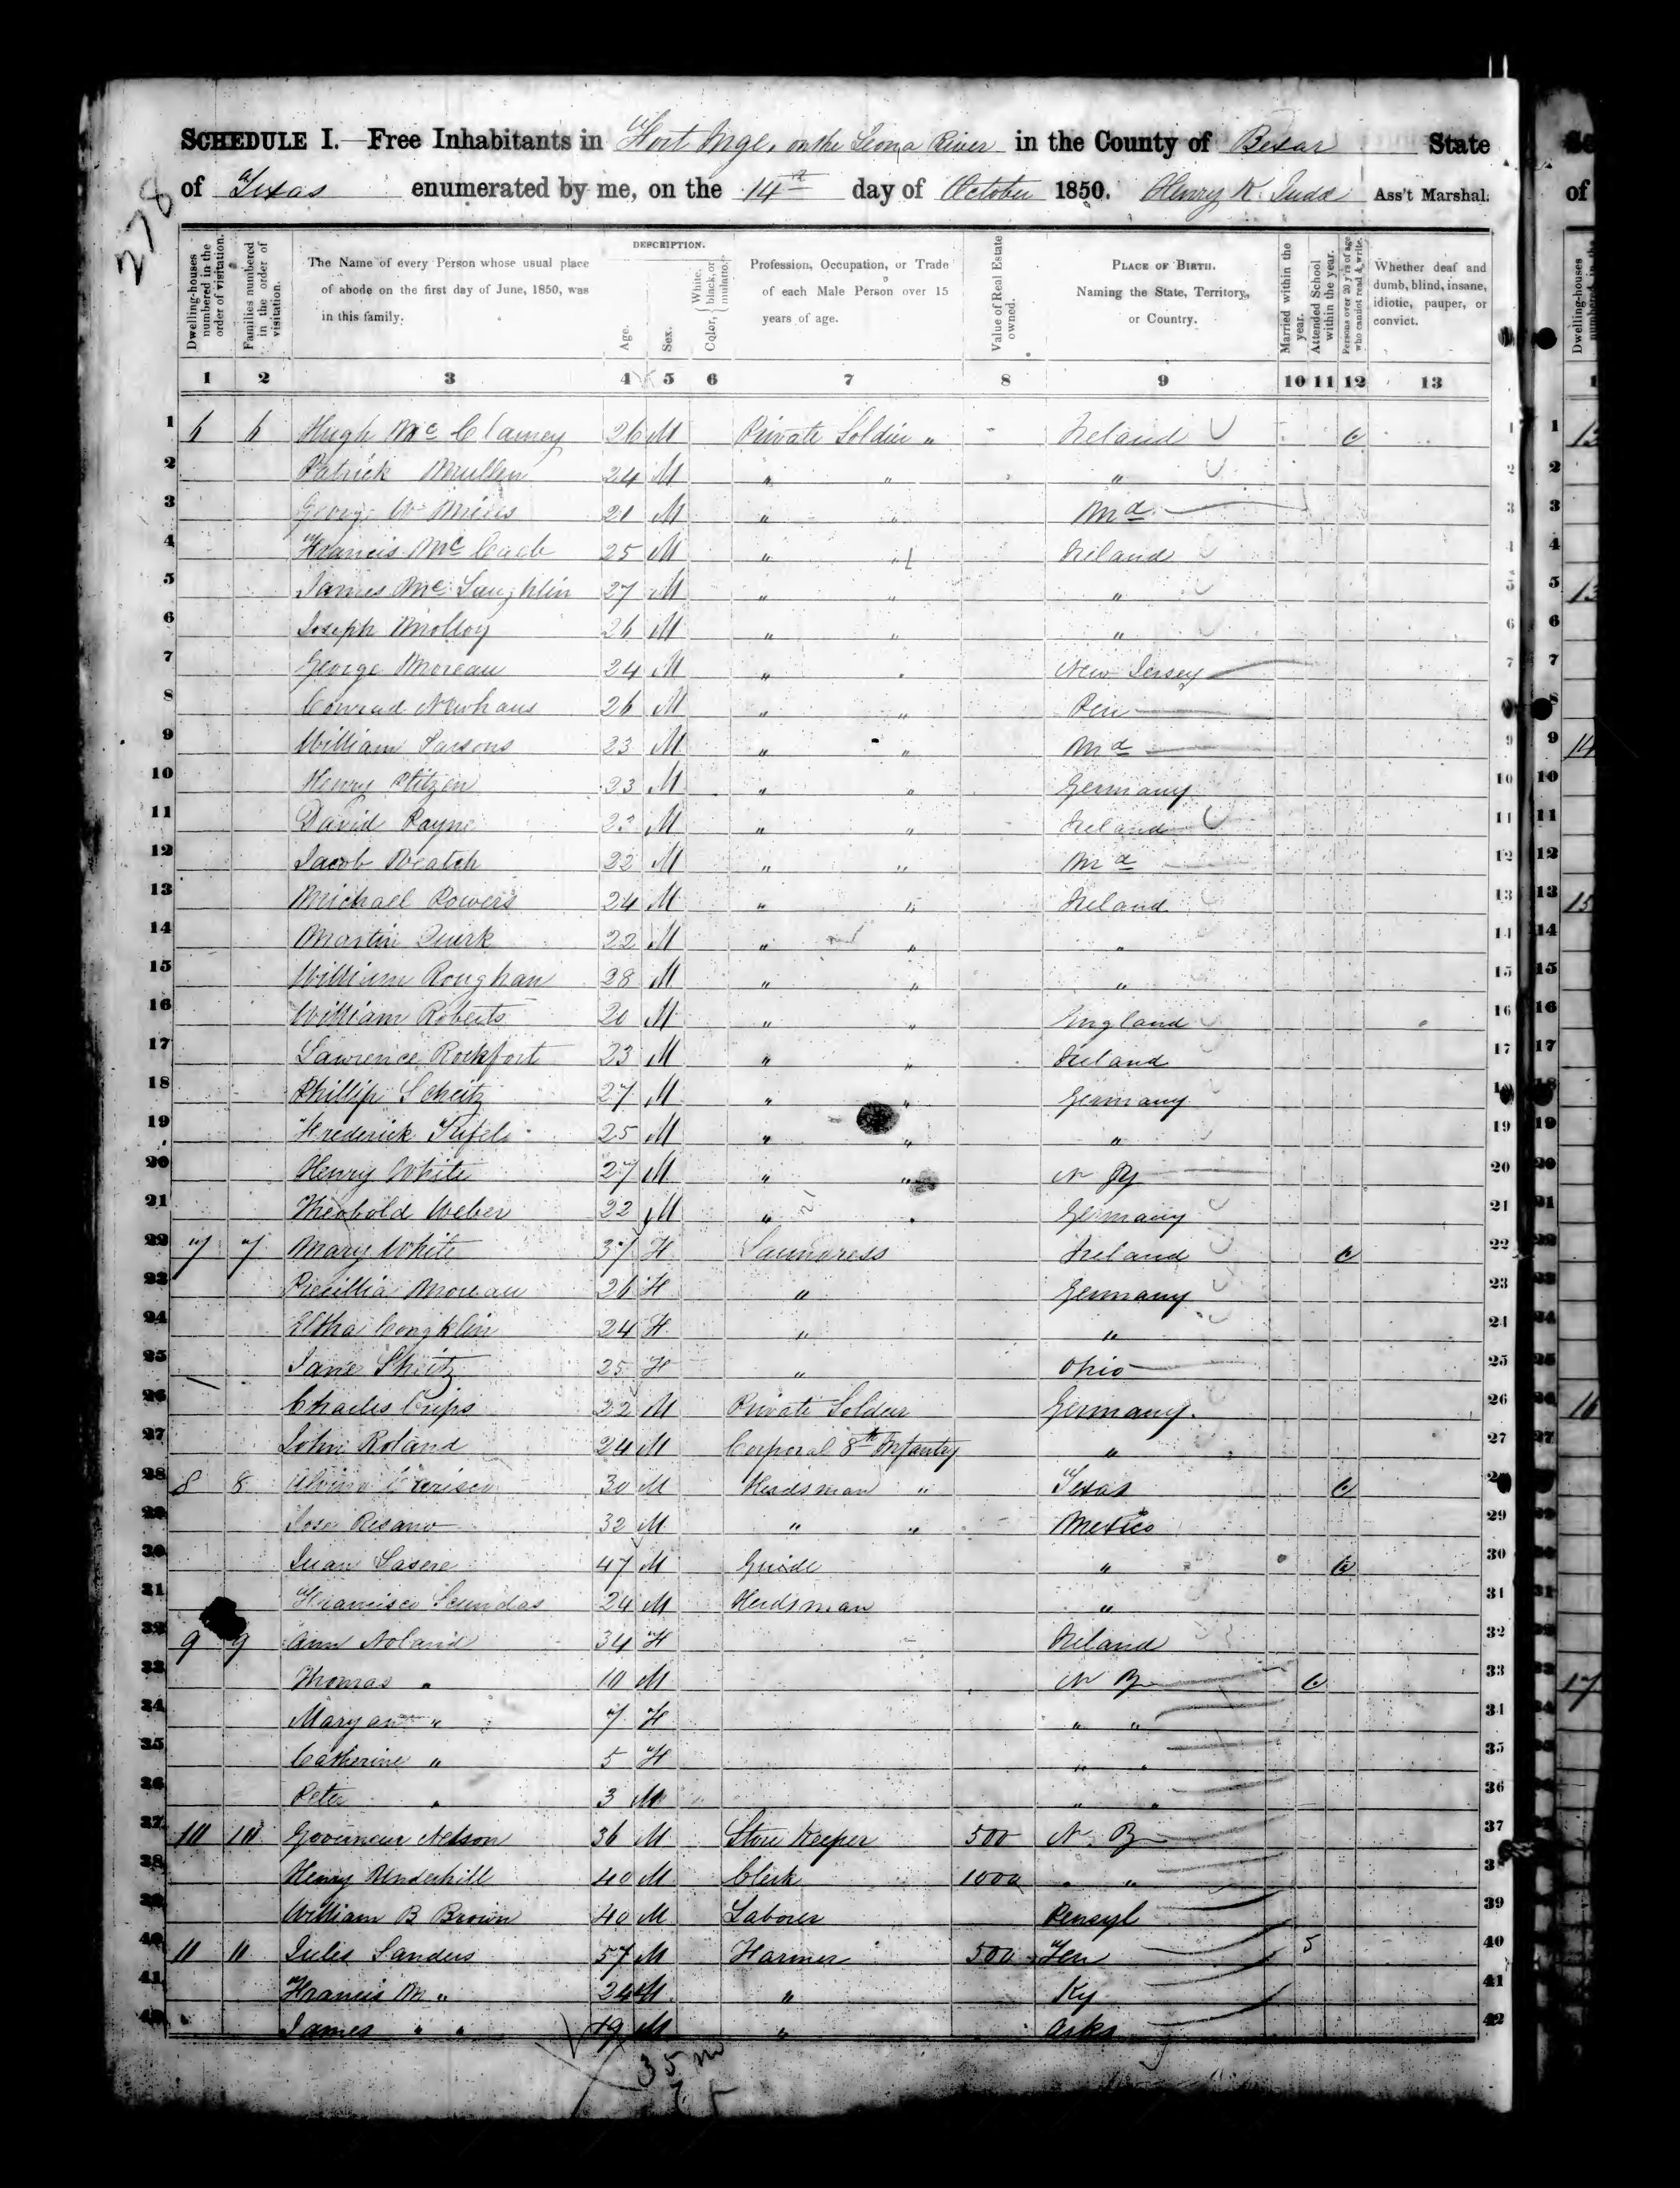 278
SCHEDULE I.—Free Inhabitants in Fort Inge, on the Leona River in the County of Bexar State
of Texas enumerated by me, on the 14th day of October 1850. Henry K. Judd Ass't Marshal.
Dwelling-houses numbered in the order of visitation.
Families numbered in the order of visitation.
The Name of every Person whose usual place of abode on the first day of June, 1850, was in this family.
DESCRIPTION.
Age.
Sex.
Color, { White, black, or mulatto.
Profession, Occupation, or Trade of each Male Person over 15 years of age.
Value of Real Estate owned.
PLACE OF BIRTH. Naming the State, Territory, or Country.
Married within the year.
Attended School within the year.
Persons over 20 y'rs of age who cannot read & write.
Whether deaf and dumb, blind, insane, idiotic, pauper, or convict.
1 2 3 4 5 6 7 8 9 10 11 12 13
1 6 6 Hugh Mc Clamey 26 M Private Soldier " Ireland 1
2 Patrick Mullen 24 M " " " 2
3 George W 21 M " " Md 3
4 Francis Mc 25 M " " Ireland 4
5 James Mc Laughlin 27 M " " " 5
6 Joseph Molloy 26 M " " " 6
7 George Moreau 24 M " " New Jersey 7
8 Conrad Newhaus 26 M " " Pen 8
9 William Parsons 23 M " " Md 9
10 Henry 23 M " " Germany 10
11 David Payne 23 M " " Ireland 11
12 Jacob 22 M " " Md 12
13 Michael Powers 24 M " " Ireland 13
14 Martin Quirk 22 M " " " 14
15 William Roughan 28 M " " " 15
16 William Roberts 20 M " " England 16
17 Lawrence Rockfort 23 M " " Ireland 17
18 Phillip Scheitz 27 M " " Germany 18
19 Frederick 25 M " " " 19
20 Henry White 27 M " " N Y 20
21 Theobold Weber 22 M " " Germany 21
22 7 7 Mary White 37 F Laundress Ireland 22
23 Moreau 26 F " Germany 23
24 24 F " " 24
25 Jane Sheitz 25 F " Ohio 25
26 Charles Crips 22 M Private Soldier Germany 26
27 John Roland 24 M Corporal 8th Infantry " 27
28 8 8 30 M Herdsman " Texas 28
29 Jose 32 M " " Mexico 29
30 Juan 47 M Guide " 30
31 Francisco 24 M Herdsman " 31
32 9 9 Ann Noland 34 F Ireland 32
33 Thomas " 10 M N Y 33
34 Mary ann " 7 F " " 34
35 Catherine " 5 F " " 35
36 Peter " 3 M " " 36
37 10 10 Governeur Nelson 36 M Store Keeper 500 N. Y 37
38 Henry Underhill 40 M Clerk 1000 " " 38
39 William B Brown 40 M Laborer Pensyl 39
40 11 11 Jules Sanders 57 M Farmer 500 Ten 5 40
41 Francis M " 24 M " Ky 41
42 James " " 19 M " Arks 42
35 m
7 f